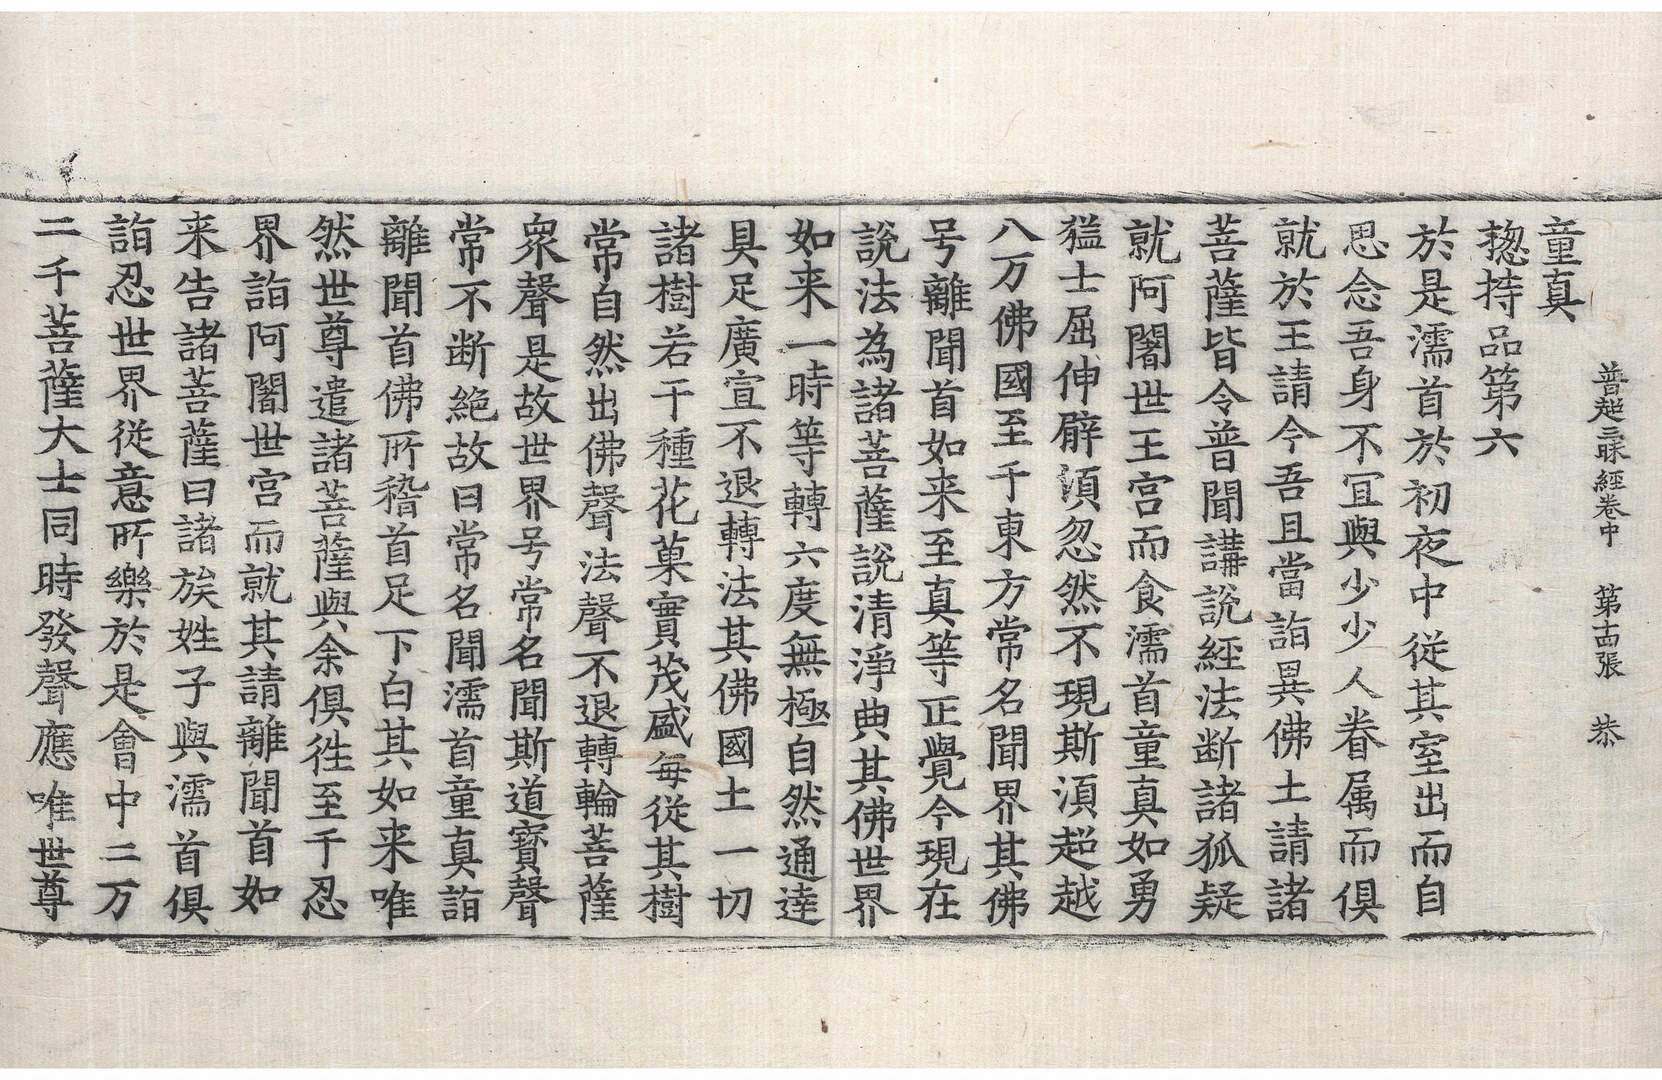 普超三昧經卷中　第十四張　㳟
童真
揔持品第六
於是濡首於初夜中從其室出而自
思念吾身不冝與少少人眷属而俱
就於王請今吾且當詣異佛土請諸
菩薩皆令普聞講說經法断諸狐疑
就阿闍世王宫而食濡首童真如勇
猛士屈伸臂湏忽然不現斯湏超越
八万佛國至千東方常名聞界其佛
号離聞首如来至真等正覺今現在
說法為諸菩薩說清淨典其佛世界
如来一時等轉六度無極自然通達
具足廣宣不退轉法其佛國土一切
諸樹若干種花菓實茂盛每從其樹
常自然出佛聲法聲不退轉輪菩薩
衆聲是故世界号常名聞斯道寳聲
常不断絶故曰常名聞濡首童真詣
離聞首佛所稽首足下白其如来唯
然世尊遣諸菩薩與余俱徃至千忍
界詣阿闍世宫而就其請離聞首如
来告諸菩薩曰諸族姓子與濡首俱
詣忍世界從意所樂於是會中二万
二千菩薩大士同時發聲應唯世尊